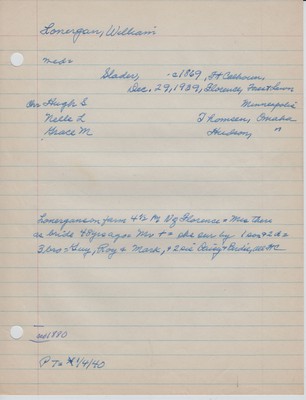 Lonergan, William
med:
Slader, - c1869, Ft Calhoun,
Dec. 29, 1939, Florence, Forest Lawn,
chr Hugh E Minneapolis
Nelle L Thomsen, Omaha
Grace M Hudson, "
Lonergans on farm 4½ Mi of Florence + Mrs there
as bride 48 yrs ago. Mrs + + she surv by 1 son + 2 ds
3 bro = Guy, Roy & Mark, + 2 sis Daisy + Birdie, all
1880
1/4/40